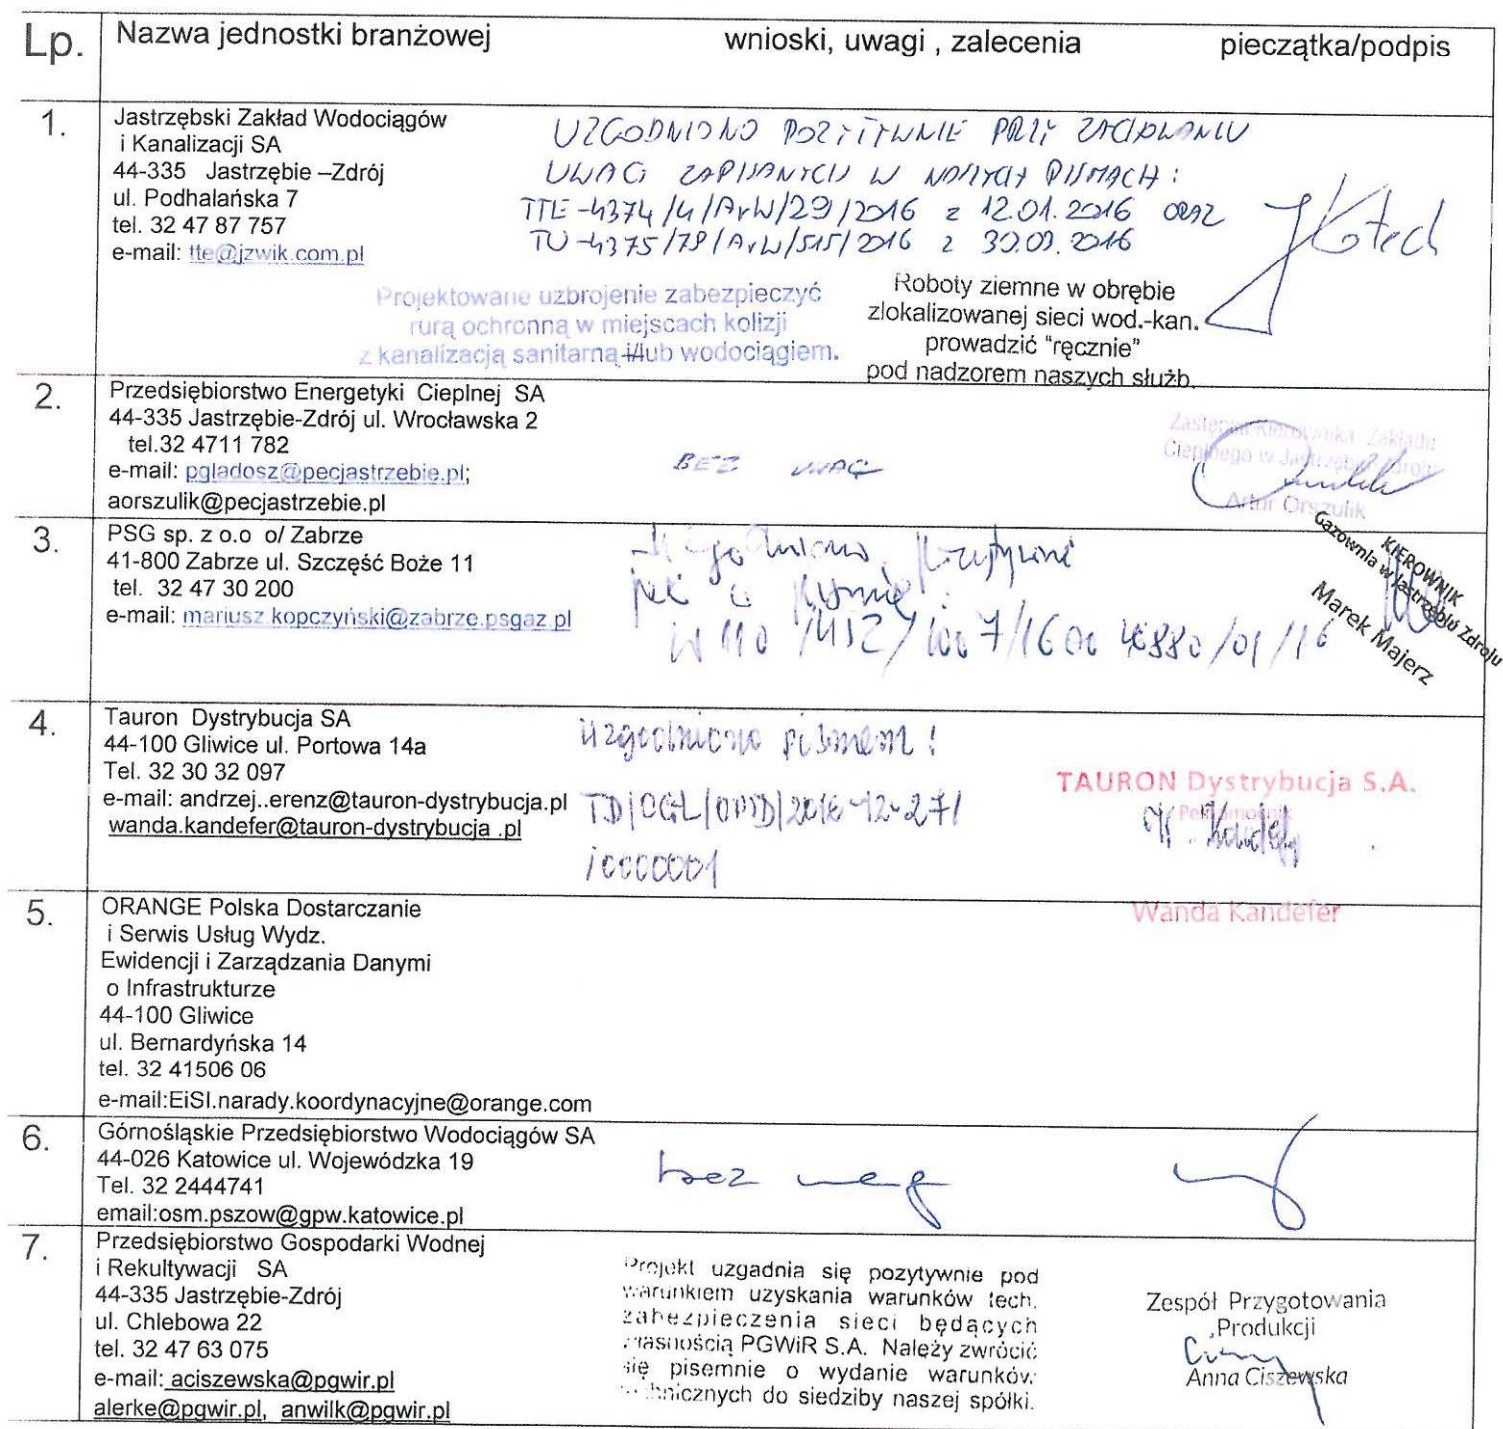 Lp. Nazwa jednostki branżowej wnioski, uwagi , zalecenia pieczątka/podpis
1. Jastrzębski Zakład Wodociągów
i Kanalizacji SA
44-335 Jastrzębie –Zdrój
ul. Podhalańska 7
tel. 32 47 87 757
e-mail: tte@jzwik.com.pl
UZGODNIONO POZYTYWNIE PRZY ZACHOWANIU
UWAG ZAPISANYCH W NASZYCH PISMACH :
TTE-4374/4/ArW/29/2016 z 12.01.2016 oraz
TU-4375/78/ArW/515/2016 z 30.09.2016
Projektowane uzbrojenie zabezpieczyć
rurą ochronną w miejscach kolizji
z kanalizacją sanitarną i/lub wodociągiem.
Roboty ziemne w obrębie
zlokalizowanej sieci wod.-kan.
prowadzić "ręcznie"
pod nadzorem naszych służb.
2. Przedsiębiorstwo Energetyki Cieplnej SA
44-335 Jastrzębie-Zdrój ul. Wrocławska 2
tel.32 4711 782
e-mail: pgladosz@pecjastrzebie.pl;
aorszulik@pecjastrzebie.pl
BEZ UWAG
Zastępca Kierownika Zakładu
Cieplnego w Jastrzębiu Zdroju
Artur Orszulik
3. PSG sp. z o.o o/ Zabrze
41-800 Zabrze ul. Szczęść Boże 11
tel. 32 47 30 200
e-mail: mariusz.kopczyński@zabrze.psgaz.pl
Uzgodniono pozytywnie
jak w piśmie :
KIEROWNIK
Gazownia w Jastrzębiu Zdroju
Marek Majerz
4. Tauron Dystrybucja SA
44-100 Gliwice ul. Portowa 14a
Tel. 32 30 32 097
e-mail: andrzej..erenz@tauron-dystrybucja.pl
wanda.kandefer@tauron-dystrybucja .pl
uzgodniono pismem :
TD/OGL/OMD/2016-12-27/
/0000001
TAURON Dystrybucja S.A.
Pełnomocnik
W. Kandefer
Wanda Kandefer
5. ORANGE Polska Dostarczanie
i Serwis Usług Wydz.
Ewidencji i Zarządzania Danymi
o Infrastrukturze
44-100 Gliwice
ul. Bernardyńska 14
tel. 32 41506 06
e-mail:EiSI.narady.koordynacyjne@orange.com
6. Górnośląskie Przedsiębiorstwo Wodociągów SA
44-026 Katowice ul. Wojewódzka 19
Tel. 32 2444741
email:osm.pszow@gpw.katowice.pl
bez uwag
7. Przedsiębiorstwo Gospodarki Wodnej
i Rekultywacji SA
44-335 Jastrzębie-Zdrój
ul. Chlebowa 22
tel. 32 47 63 075
e-mail: aciszewska@pgwir.pl
alerke@pgwir.pl, anwilk@pgwir.pl
Projekt uzgadnia się pozytywnie pod
warunkiem uzyskania warunków tech.
zabezpieczenia sieci będących
własnością PGWiR S.A. Należy zwrócić
się pisemnie o wydanie warunków
technicznych do siedziby naszej spółki.
Zespół Przygotowania
Produkcji
Anna Ciszewska